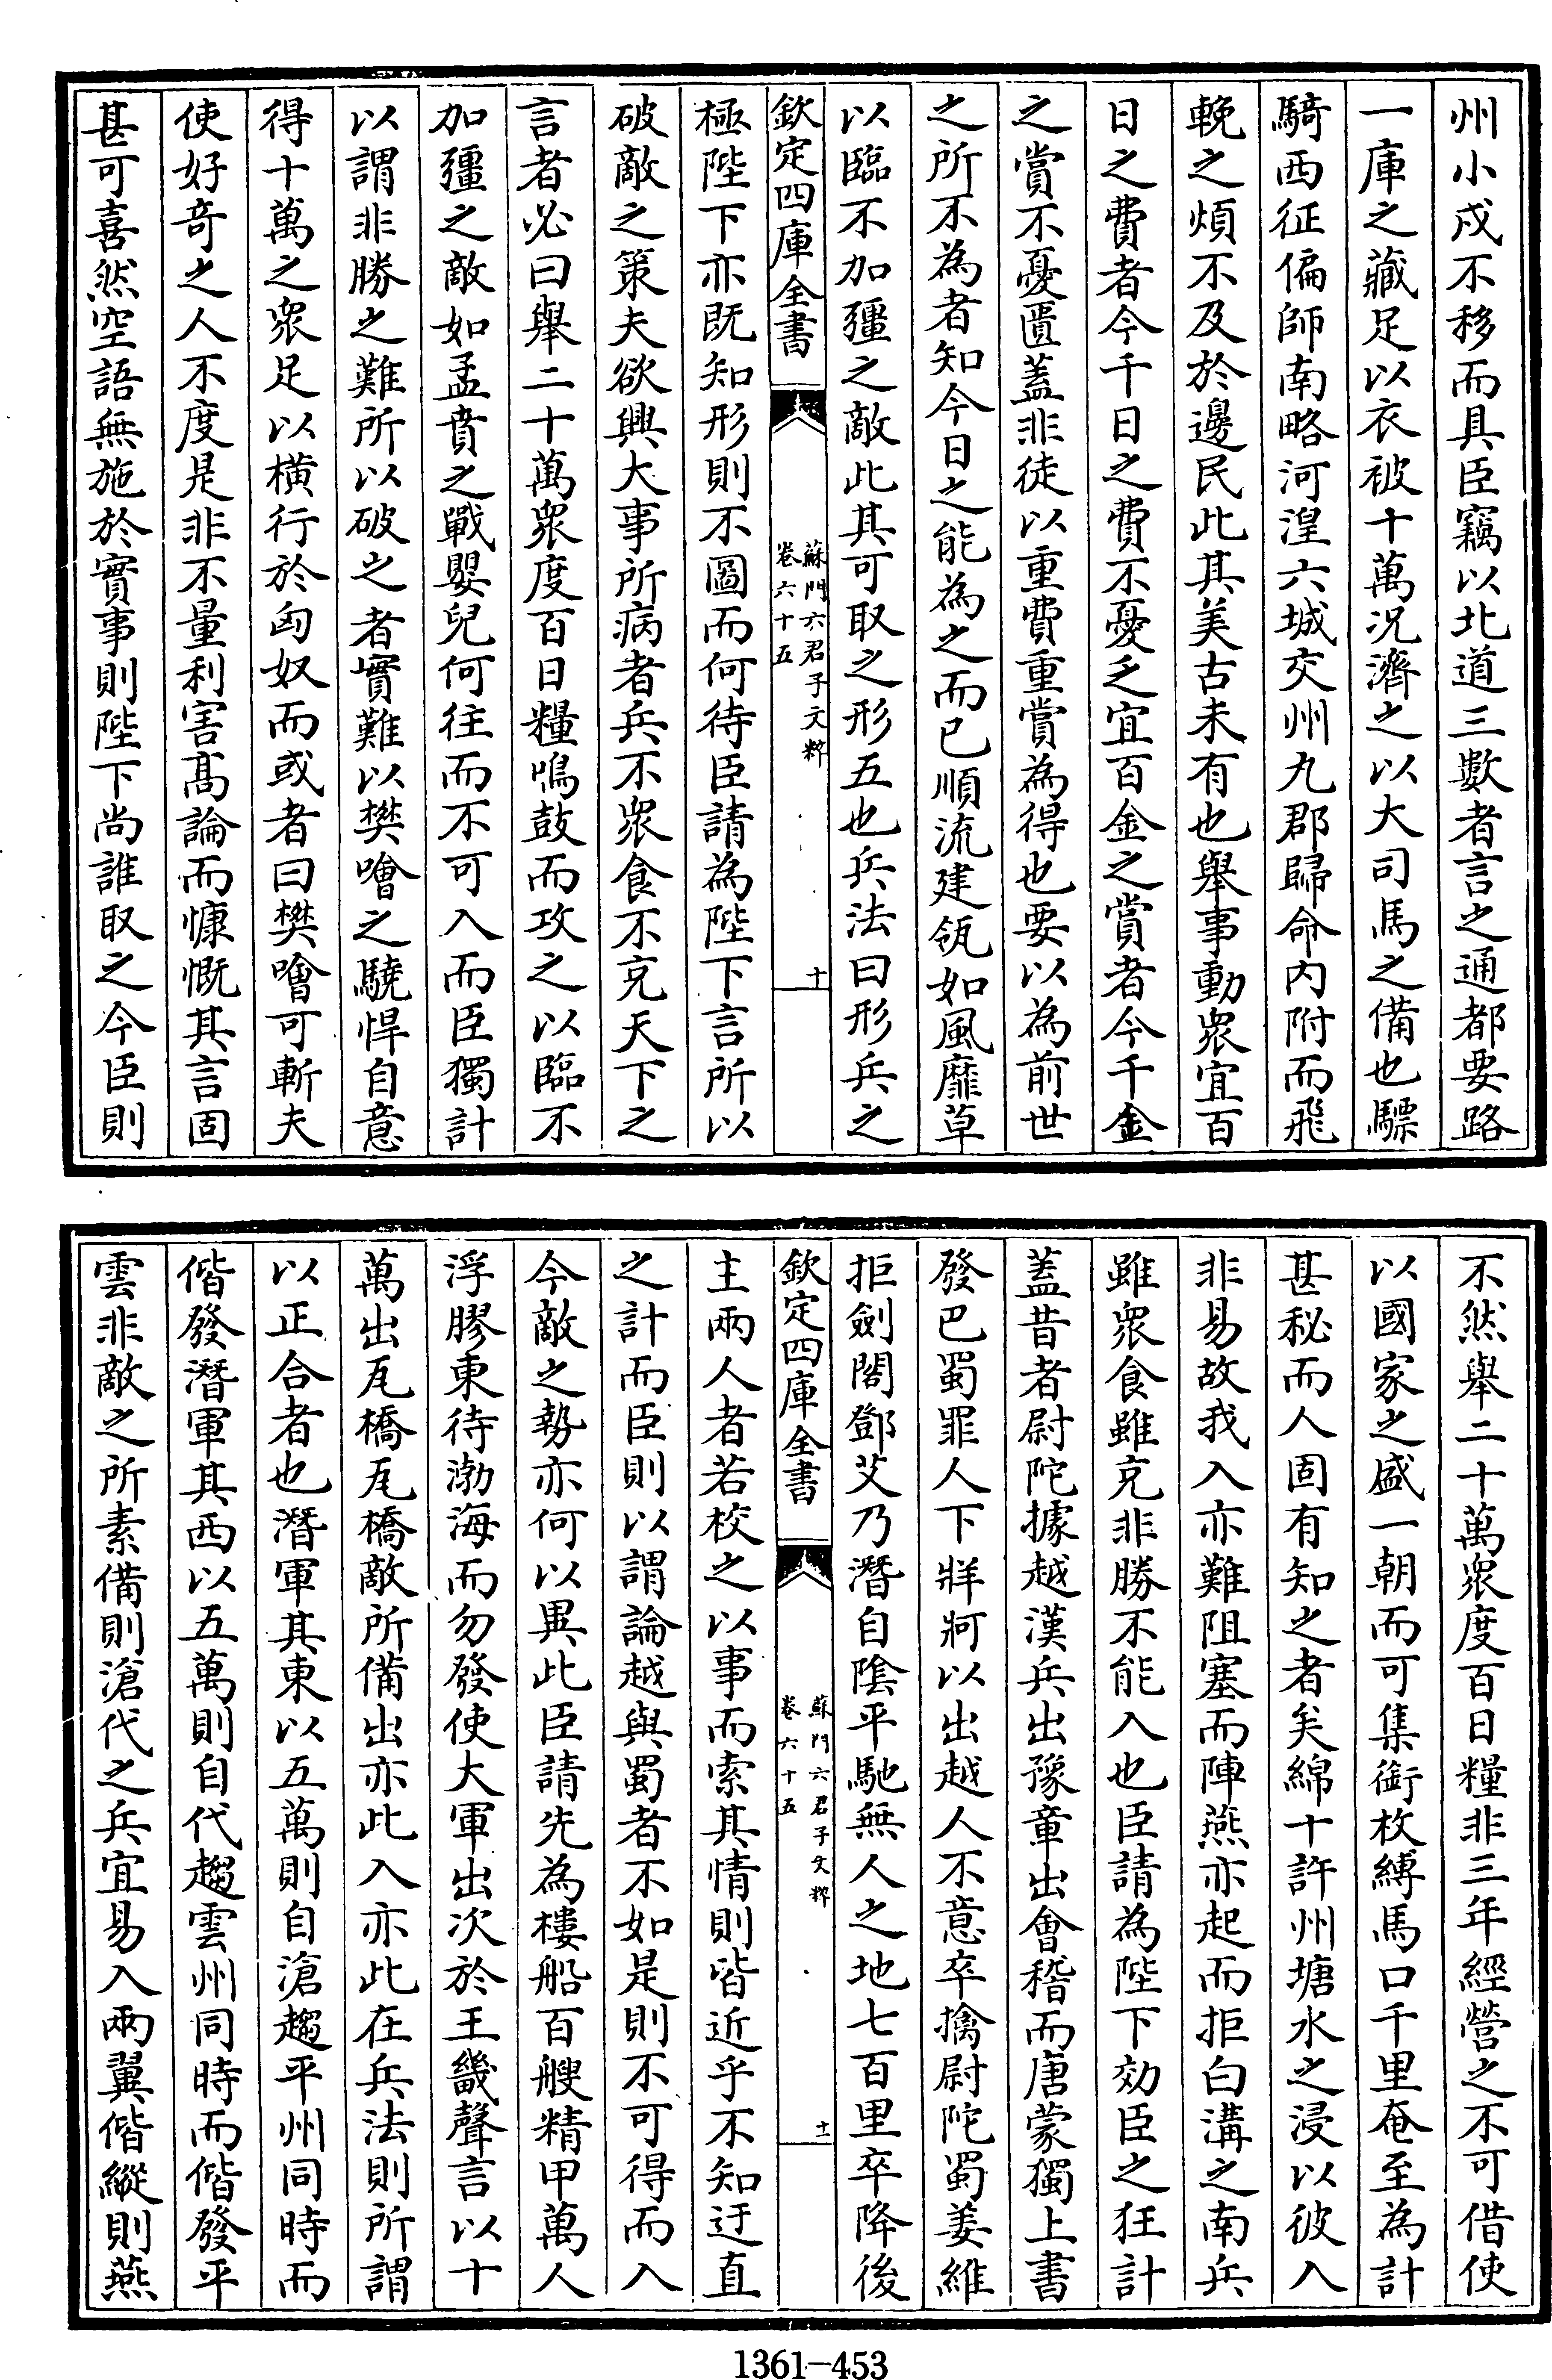 州小戍不移而具臣竊以北道三數者言之通都要路
一庫之藏足以衣被十萬況濟之以大司馬之備也驃
騎西征偏師南略河湟六城交州九郡歸命内附而飛
輓之煩不及於邊民此其美古未有也舉事動衆宜百
日之費者今千日之費不憂乏宜百金之賞者今千金
之賞不憂匱蓋非徒以重費重賞為得也要以為前世
之所不為者知今日之能為之而已順流建瓴如風靡草
以臨不加彊之敵此其可取之形五也兵法曰形兵之
欽定四庫全書
蘇門六君子文粹
卷六十五
十
極陛下亦既知形則不圖而何待臣請為陛下言所以
破敵之策夫欲興大事所病者兵不衆食不充天下之
言者必曰舉二十萬衆度百日糧鳴鼓而攻之以臨不
加彊之敵如孟賁之戰嬰兒何往而不可入而臣獨計
以謂非勝之難所以破之者實難以樊噲之驍悍自意
得十萬之衆足以橫行於匈奴而或者曰樊噲可斬夫
使好奇之人不度是非不量利害高論而慷慨其言固
甚可喜然空語無施於實事則陛下尚誰取之今臣則
不然舉二十萬衆度百日糧非三年經營之不可借使
以國家之盛一朝而可集銜枚縛馬口千里奄至為計
甚秘而人固有知之者矣綿十許州塘水之浸以彼入
非易故我入亦難阻塞而陣燕亦起而拒白溝之南兵
雖衆食雖充非勝不能入也臣請為陛下効臣之狂計
蓋昔者尉陀據越漢兵出豫章出會稽而唐蒙獨上書
發巴蜀罪人下牂牁以出越人不意卒擒尉陀蜀姜維
拒劍閣鄧艾乃潛自陰平馳無人之地七百里卒降後
欽定四庫全書
蘇門六君子文粹
卷六十五
十一
主兩人者若校之以事而索其情則皆近乎不知迂直
之計而臣則以謂論越與蜀者不如是則不可得而入
今敵之勢亦何以異此臣請先為樓船百艘精甲萬人
浮膠東待渤海而勿發使大軍出次於王畿聲言以十
萬出瓦橋瓦橋敵所備出亦此入亦此在兵法則所謂
以正合者也潛軍其東以五萬則自滄趨平州同時而
偕發潛軍其西以五萬則自代趨雲州同時而偕發平
雲非敵之所素備則滄代之兵宜易入兩翼偕縱則燕
1361-453